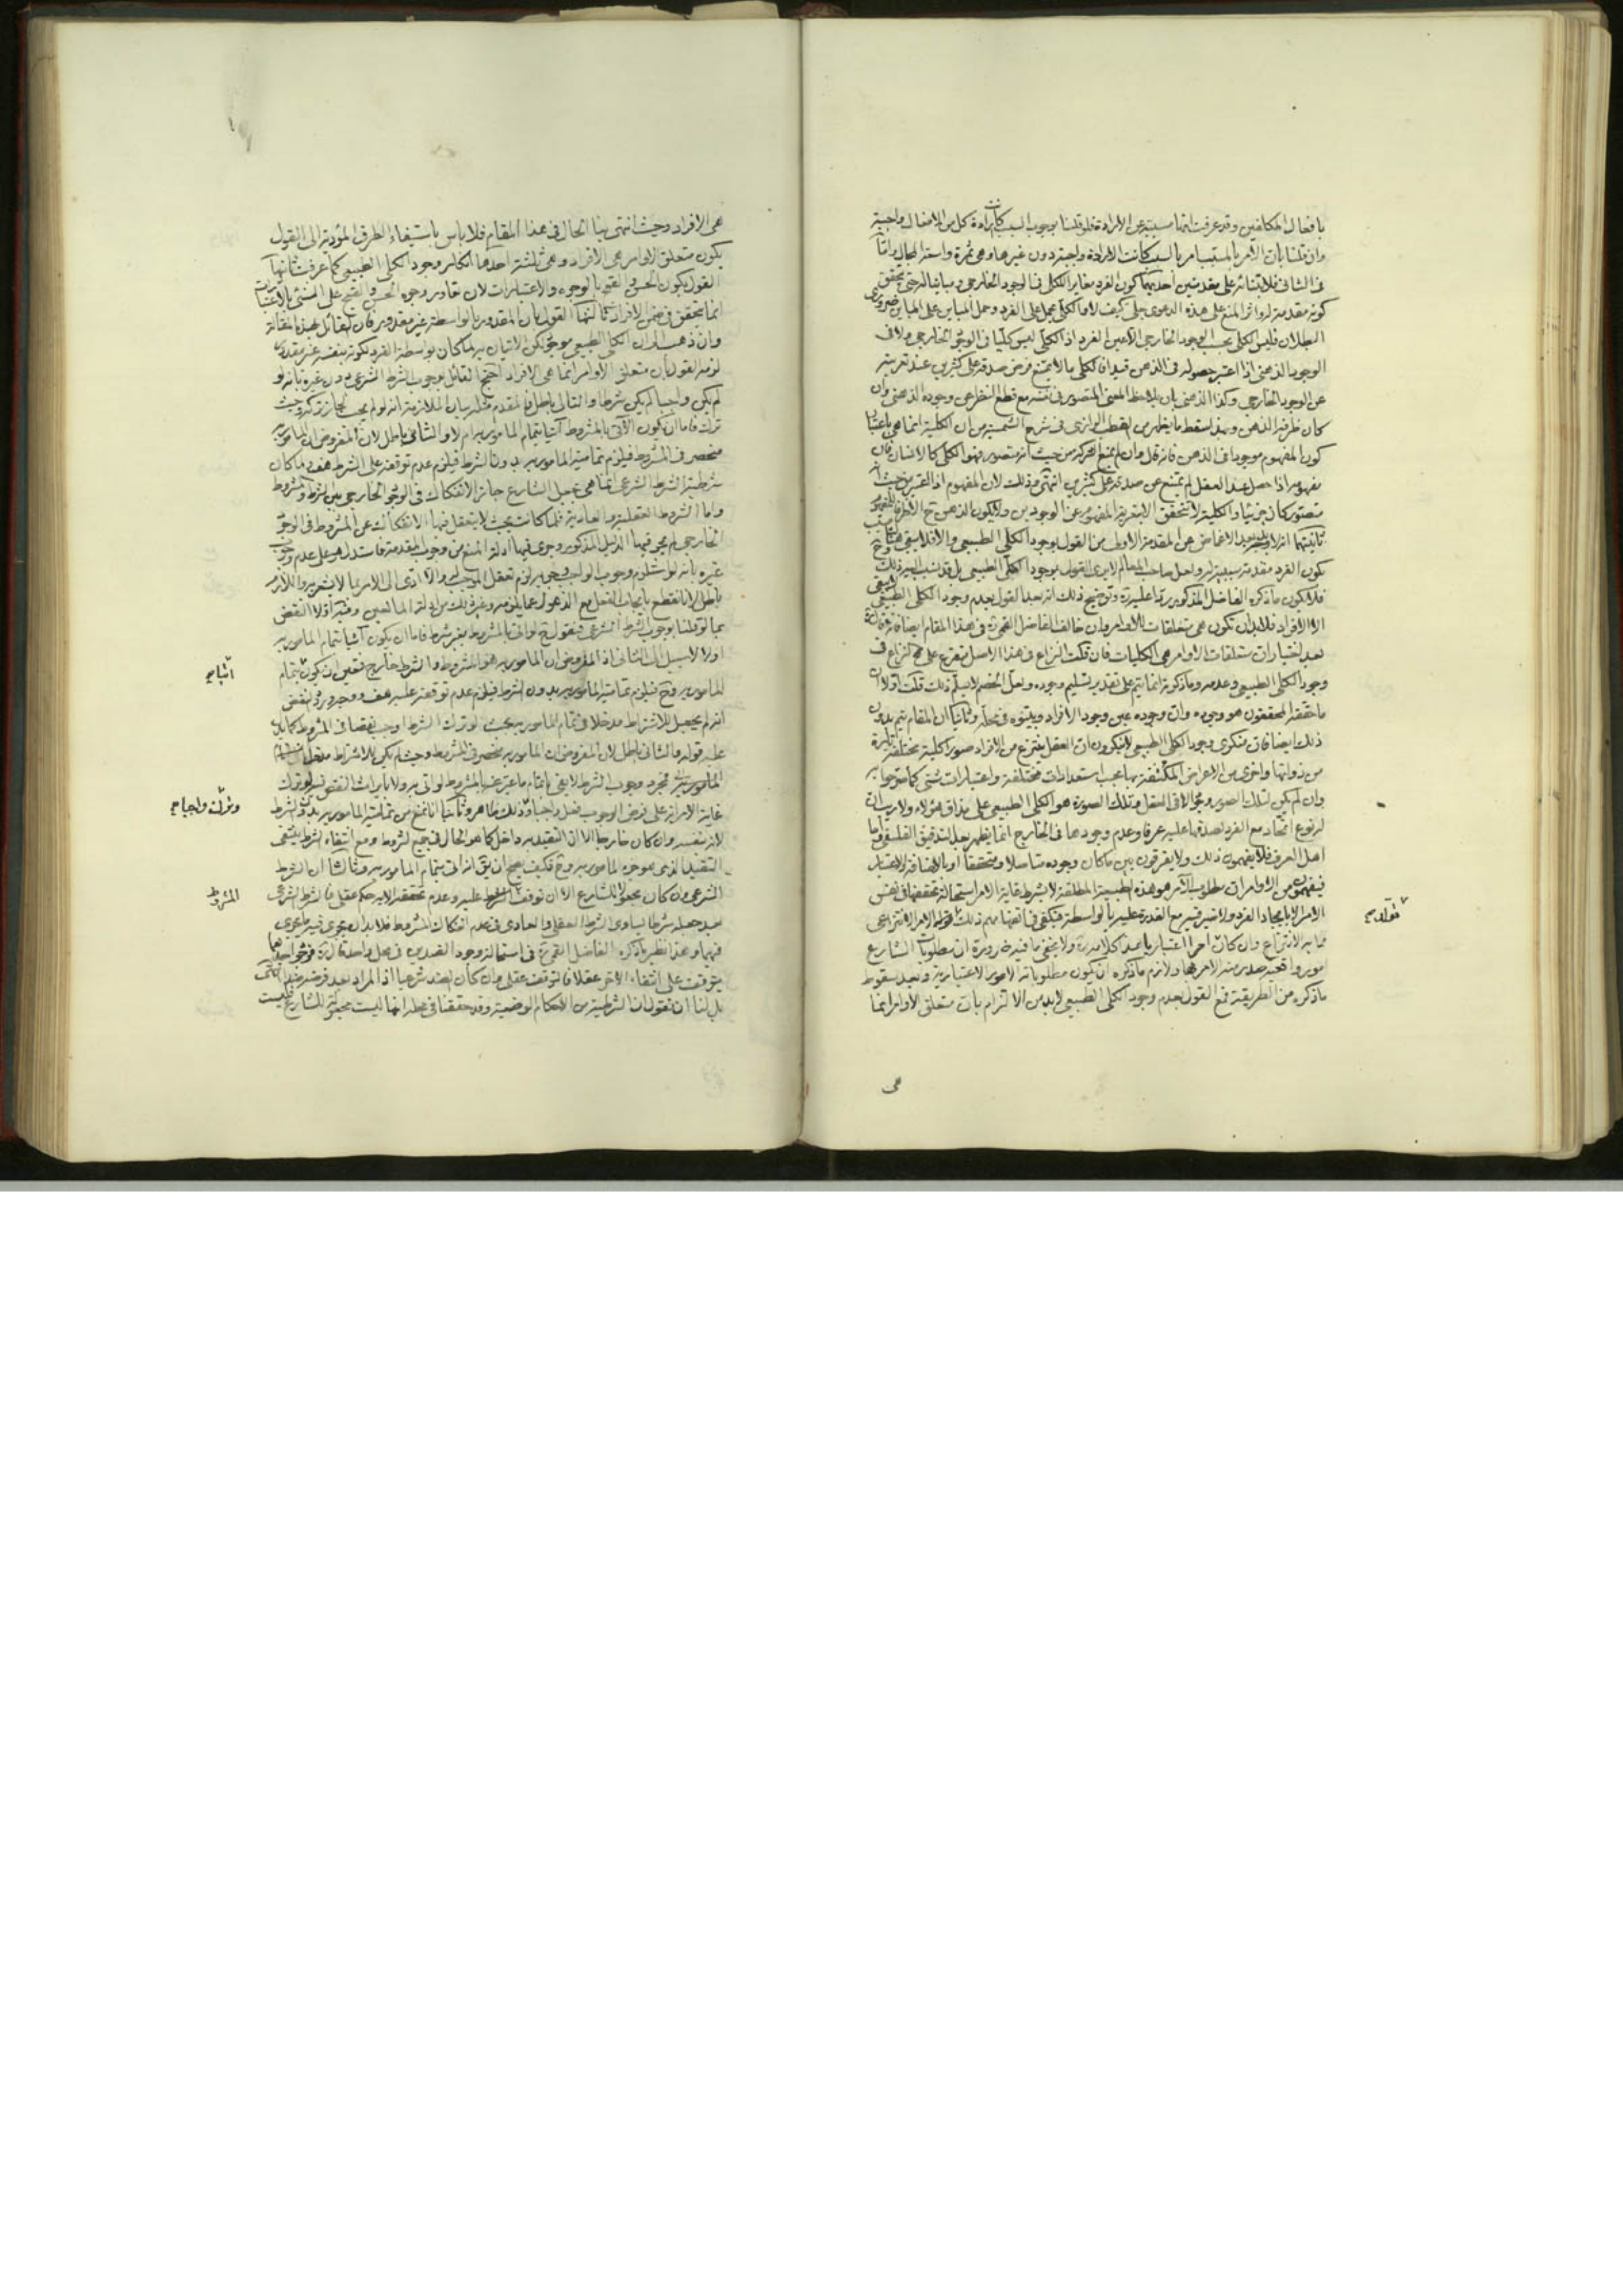 بافعال المكلفين وقد عرفت انها مسببة عن الارادة فلو قلنا بوجوب السبب كانت ارادة كل من الافعال واجبة
وان قلنا بان الامر بالمسبب امر بالسبب كانت الارادة واجبة دون غيرها وهي ثمرة واسعة المجال واما
في الثاني فلابتنائه على مقدمتين احديهما كون الفرد مغاير الكلي في الوجود الخارجي ومباينا له حتى يتحقق
كونه مقدمة له واثر المنع على هذه الدعوى جلي كيف لا والكلي يحمل على الفرد وحمل المباين على المباين ضروري
البطلان فليس الكلي بحسب الوجود الخارجي الا عين الفرد اذ الكلي ليس كليا في الوجود الخارجي ولا في
الوجود الذهني اذا اعتبر حصوله في الذهن قيدا فان الكلي ما لا يمتنع فرض صدقه على كثيرين عند تعريته
عن الوجود الخارجي وكذا الذهني بان يلاحظ المعنى المتصور في نفسه مع قطع النظر عن وجوده الذهني وان
كان ظرفه الذهن وبهذا سقط ما يظهر من القطب الرازي في شرح الشمسية من ان الكلية انما هي باعتبار
كون المفهوم موجودا في الذهن فانه قال وان لم يمنع الشركة من حيث انه متصور فهو الكلي كالانسان فان
مفهومه اذا حصل عند العقل لم يمتنع عن صدقه على كثيرين انتهى وذلك لان المفهوم اذا اعتبر من حيث انه
متصور كان جزئيا والكلية لا تتحقق الا بتعرية المفهوم عن الوجودين ولا يكون الذهن ح الا ظرفا للمفهوم
ثانيتهما انه لا بعد الاغماض عن المقدمة الاولى من القول بوجود الكلي الطبيعي والا فلا يبقى
كون الفرد مقدمة سببية له ولعل صاحب المعالم لا يرى القول بوجود الكلي الطبيعي بل قد نسب اليه ذلك
فلا يكون ما ذكره الفاضل المذكور ردا عليه وتوضيح ذلك انه بعد القول بعدم وجود الكلي الطبيعي لا يبقى
الا الافراد فلا بد ان تكون هي متعلقات الاوامر وان خالف الفاضل القمي في هذا المقام ايضا
بعد اختيار ان متعلقات الاوامر هي الكليات فان قلت النزاع في هذا الاصل متفرع على النزاع في
وجود الكلي الطبيعي وعدمه وما ذكرته انما يتم على تقدير تسليم وجوده ولعل الخصم لا يسلم ذلك قلت اولا ان
ما حققه المحققون هو وجوده وان وجوده عين وجود الافراد وبينوه في محله وثانيا ان المقام يتم بدون
ذلك ايضا فان منكري وجود الكلي الطبيعي لا ينكرون ان العقل ينتزع من الافراد صورا كلية مختلفة تارة
من ذواتها واخرى من الاعراض المكتنفة بها بحسب استعدادات مختلفة واعتبارات شتى كما صرحوا به
وان لم يكن لتلك الصور وجود الا في العقل وتلك الصورة هو الكلي الطبيعي على مذاق هؤلاء ولا ريب ان
له نوع اتحاد مع الفرد لصدقها عليه عرفا وعدم وجودها في الخارج انما يظهر بعد التدقيق الفلسفي واما
اهل العرف فلا يفهمون ذلك ولا يفرقون بين ما كان وجوده متاصلا ومتحققا او بالاضافة والاعتبار
فيفهمون من الاوامر ان مطلوب الآمر هو هذه الطبيعة المطلقة لا بشرط غاية الامر استحالة تحققها في نفس
الامر الا بايجاد الفرد ولا ضير فيه مع القدرة عليه بالواسطة فيكفي في اتصافها مهم ذلك الامر الانتزاعي
مما به الانتزاع وان كان امرا اعتباريا هذا كلامه ره ولا يخفى ما فيه ضرورة ان مطلوبات الشارع
امور واقعية صدر منه الامر بها ولازم ما ذكره ان يكون مطلوباته الامور الاعتبارية وبعد سقوط
ما ذكره من الطريقة فمع القول بعدم وجود الكلي الطبيعي لا بد من الالتزام بان متعلق الاوامر انما
هي
هي الافراد وحيث انتهى بنا الحال في هذا المقام فلا باس باستيفاء الطرق المؤدية الى القول
بكون متعلق الاوامر هي الافراد وهي ثلثة احدها انكار وجود الكلي الطبيعي كما عرفت ثانيها
القول بكون الحسن والقبح بالوجوه والاعتبارات لان تمايز وجوه الحسن والقبح على المبني بالاعتبارات
انما يتحقق في ضمن الافراد ثالثها القول بان المقدور بالواسطة غير مقدور فان القائل بهذه المقالة
وان ذهب الى ان الكلي الطبيعي موجود لكن الاتيان به لما كان بواسطة الفرد لكونه بنفسه غير مقدور
لزمه القول بان متعلق الاوامر انما هي الافراد احتج القائل بوجوب الشرط الشرعي دون غيره بانه لو
لم يكن واجبا لم يكن شرطا والتالي باطل فالمقدم مثله بيان الملازمة انه لو لم يجب لجاز تركه وحيث
ترك فاما ان يكون الآتي بالمشروط آتيا بتمام المامور به ام لا والثاني باطل لان المفروض ان المامور به
منحصر في المشروط فيلزم تمامية المامور به بدون الشرط فيلزم عدم توقفه على الشرط هف ولما كان
شرطية الشرط الشرعي انما هي بجعل الشارع جاز الانفكاك في الوجود الخارجي بين الشرط والمشروط
واما الشروط العقلية والعادية فلما كانت بحيث لا يتعقل فيها الانفكاك عن المشروط في الوجود
الخارجي لم يجر فيها الدليل المذكور وجرى فيها ادلة المنع من وجوب المقدمة فاستدل على عدم وجوب
غيره بانه لو استلزم وجوب الواجب وجوبه لزم تعقل الموجب له والا ادى الى الامر بما لا يشعر به واللازم
باطل لانا نقطع بايجاب الفعل مع الذهول عما يلزمه وغير ذلك من ادلة المانعين وفيه اولا النقض
بما لو قلنا بوجوب الشرط الشرعي فنقول ح لو اتى بالمشروط بغير شرط فاما ان يكون آتيا بتمام المامور به
اولا لا سبيل الى الثاني اذ المفروض ان المامور به هو المشروط والشرط خارج فتعين ان يكون بتمام
المامور به وح فيلزم تمامية المامور به بدون الشرط فيلزم عدم توقفه عليه هف ووجه ورود النقض
انه لم يجعل للاشتراط مدخلا في تمام المامور به بحيث لو ترك الشرط اوجب نقصا في المشروط كما يدل
عليه قوله والثاني باطل لان المفروض ان المامور به منحصر في المشروط وحيث لم يكن للاشتراط مدخل
المامور به فمجرد وجوب الشرط لا يفي باتمام ما عبر عنه بالمشروط لو اتى به ولا بايراث النقص فيه لو ترك
غاية الامر انه على فرض الوجوب فعل واجبا وذلك ظاهر وثانيا انا نمنع من تمامية المامور به بدون الشرط
لانه بنفسه وان كان خارجا الا ان التقييد به داخل كما هو الحال في جميع الشروط ومع انتفاء الشرط ينتفي
التقييد الذي هو جزء المامور به وح فكيف يصح ان يق انه اتى بتمام المامور به وثالثا ان الشرط
الشرعي وان كان بجعل الشارع الا ان توقف عليه وعدم تحققه الا به حكم عقلي فالشرط الشرعي
بعد جعله شرطا يساوي الشرط العقلي والعادي في عدم انفكاك المشروط فلا بد ان يجري فيه ما يجري
فيهما وهذا نظير ما ذكره الفاضل القمي ره في استحالة وجود الضدين في محل واحد قال ره فوجود احدهما
يتوقف على انتفاء الآخر عقلا فالتوقف عقلي وان كان الضد شرعيا اذ المراد بعد فرضه ضدا انتهى
بل لنا ان نقول ان الشرطية من الاحكام الوضعية وقد حققنا في محله انها ليست بجعل الشارع فليست
آتيا
وترك واجبا
المشروط